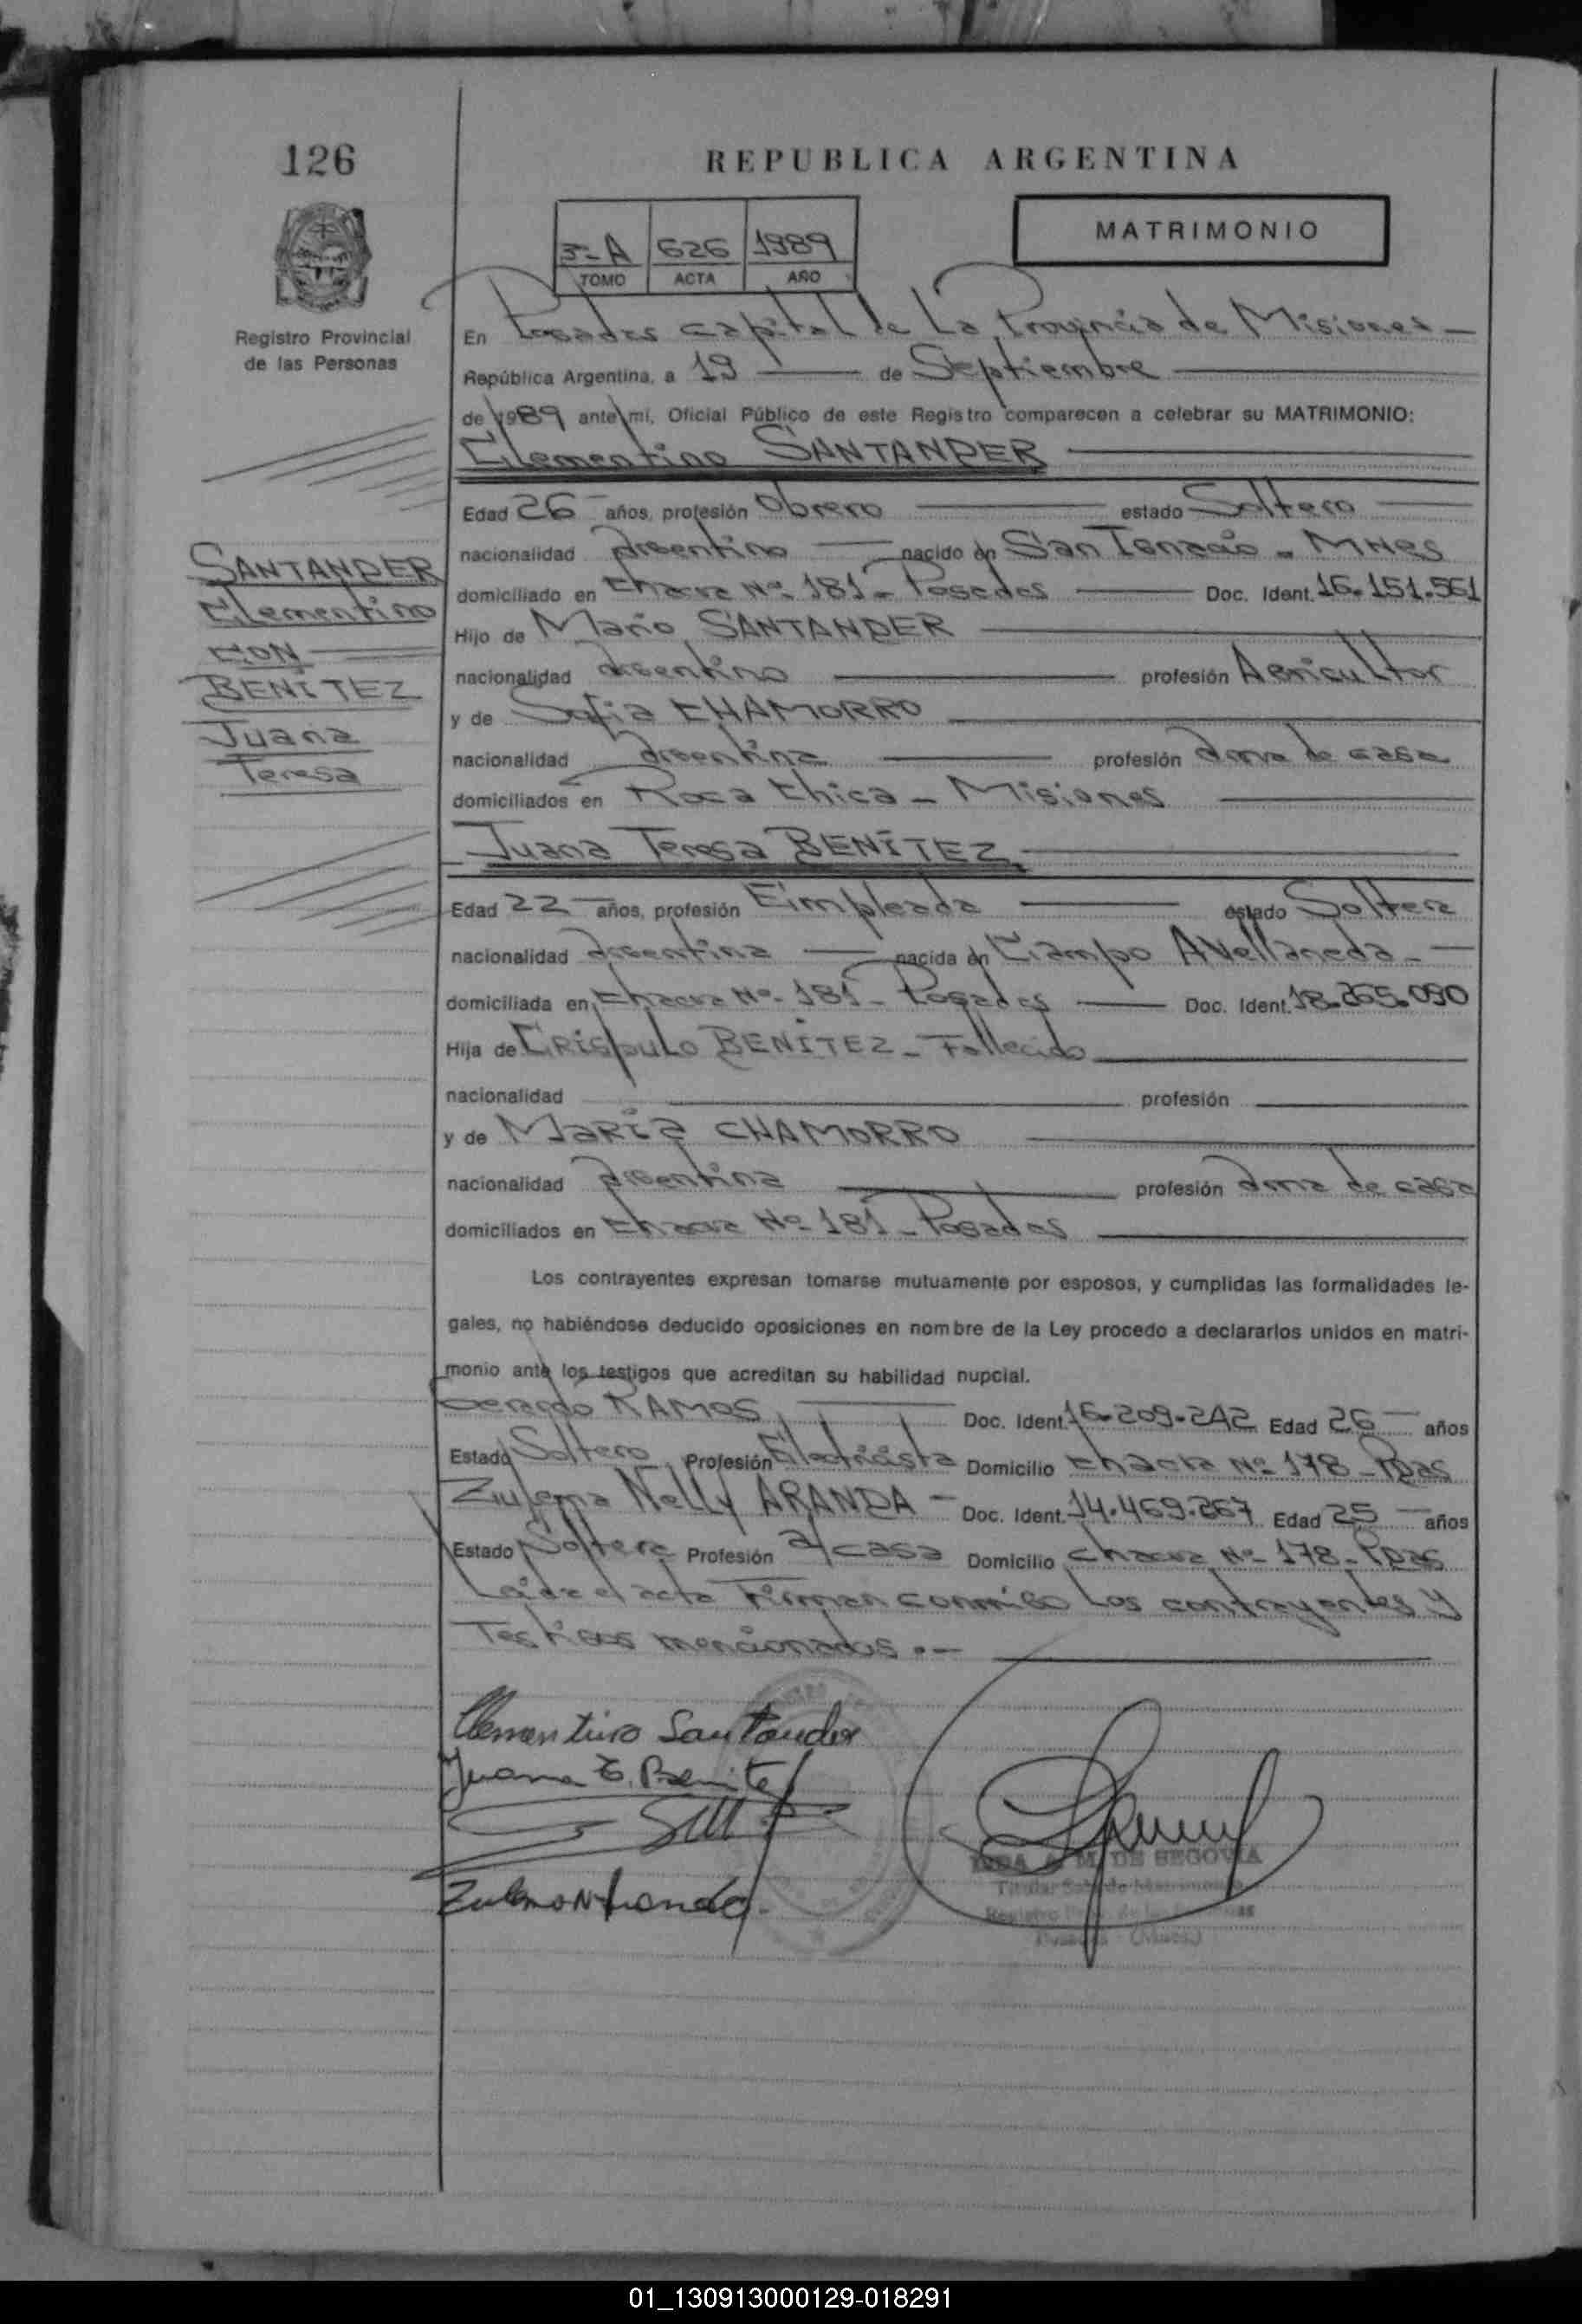 126
REPUBLICA ARGENTINA
MATRIMONIO
3-A 626 1989
TOMO ACTA AÑO
Registro Provincial
de las Personas
En Posadas capital de La Provincia de Misiones -
República Argentina, a 19 de Septiembre
de 1989 ante mí, Oficial Público de este Registro comparecen a celebrar su MATRIMONIO:
Clementino SANTANDER
Edad 26 años, profesión Obrero estado Soltero
nacionalidad argentino nacido en San Ignacio - Mnes
domiciliado en Chacra Nº 181 - Posadas Doc. Ident. 16.151.561
Hijo de Mario SANTANDER
nacionalidad argentino profesión Agricultor
y de Sofia CHAMORRO
nacionalidad argentina profesión ama de casa
domiciliados en Roca Chica - Misiones
SANTANDER
Clementino
CON
BENITEZ
Juana
Teresa
Juana Teresa BENITEZ
Edad 22 años, profesión Empleada estado Soltera
nacionalidad argentina nacida en Campo Avellaneda -
domiciliada en Chacra Nº 181 - Posadas Doc. Ident. 18.265.090
Hija de CRISPULO BENITEZ - Fallecido
nacionalidad profesión
y de MARIA CHAMORRO
nacionalidad argentina profesión ama de casa
domiciliados en Chacra Nº 181 - Posadas
Los contrayentes expresan tomarse mutuamente por esposos, y cumplidas las formalidades le-
gales, no habiéndose deducido oposiciones en nombre de la Ley procedo a declararlos unidos en matri-
monio ante los testigos que acreditan su habilidad nupcial.
Gerardo RAMOS Doc. Ident. 16.209.242 Edad 26 años
Estado Soltero Profesión Electricista Domicilio Chacra Nº 178 - Pdas
Zulema Nelly ARANDA - Doc. Ident. 14.469.267 Edad 25 años
Estado Soltera Profesión a/casa Domicilio Chacra Nº 178 - Pdas
Leida el acta Firman conmigo Los contrayentes y
Testigos mencionados .-
Clementino Santander
Juana T. Benitez
Zulema N Aranda
A. M. DE SEGOVIA
Titular Sala de Matrimonios
Posadas - (Mnes.)
01_130913000129-018291